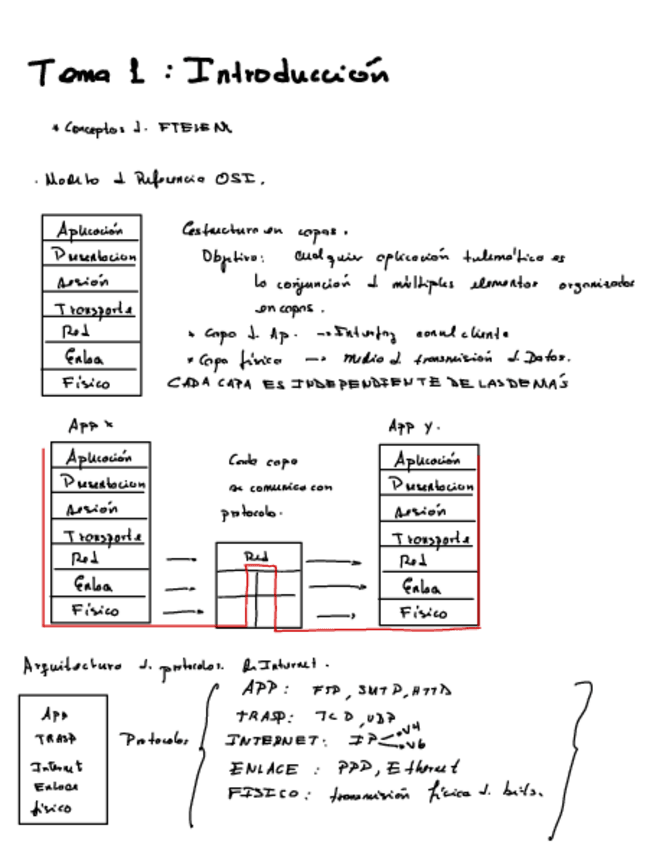 Tema 1 : Introducción
* Conceptos d. FTELEM
. Modelo d Referencia OSI.
Aplicación
Presentacion
Sesión
Transporte
Red
Enlace
Físico
Estructura en capas.
Objetivo: Cualquier aplicación telemática es
la conjunción d múltiples elementos organizados
en capas.
* Capa d. Ap. → Interfaz con el cliente
* Capa física → medio d transmisión d Datos.
CADA CAPA ES INDEPENDIENTE DE LAS DEMÁS
App x
Aplicación
Presentacion
Sesión
Transporte
Red
Enlace
Físico
Cada capa
se comunica con
protocolo.
Red
App y.
Aplicación
Presentacion
Sesión
Transporte
Red
Enlace
Físico
Arquitectura d. protocolos. Internet.
App
TRASP
Internet
Enlace
físico
Protocolos
APP: FTP, SMTP, HTTP
TRASP: TCP, UDP
INTERNET: IP v4 v6
ENLACE : PPP, Ethernet
FISICO: transmisión física d. bits.